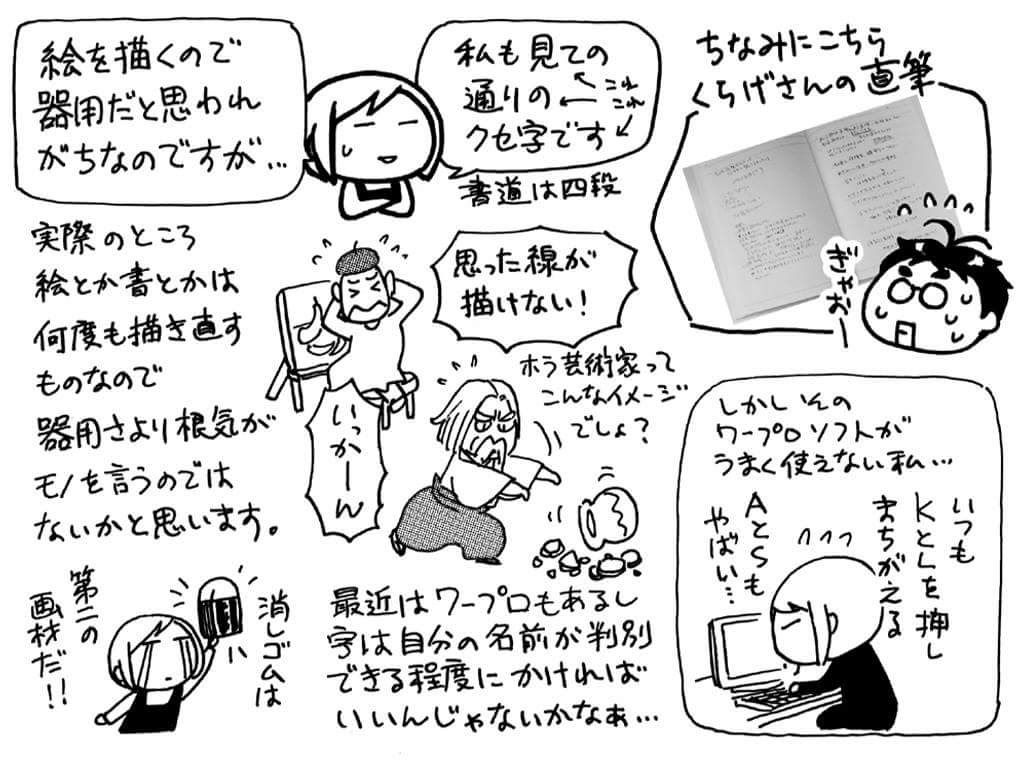 絵を描くので
器用だと思われ
がちなのですが…
私も見ての
通りの
クセ字です
これ
これ
書道は四段
ちなみにこちら
くらげさんの直筆
ぎゃおー
実際のところ
絵とか書とかは
何度も描き直す
ものなので
器用さより根気が
モノを言うのでは
ないかと思います。
思った線が
描けない!
いっかーん
ホラ芸術家って
こんなイメージ
でしょ?
消しゴムは
第二の
画材だ!!
最近はワープロもあるし
字は自分の名前が判別
できる程度にかければ
いいんじゃないかなぁ…
しかしいんの
ワープロソフトが
うまく使えない私…
いつも
KとLを押し
まちがえる
AとSも
やばい…